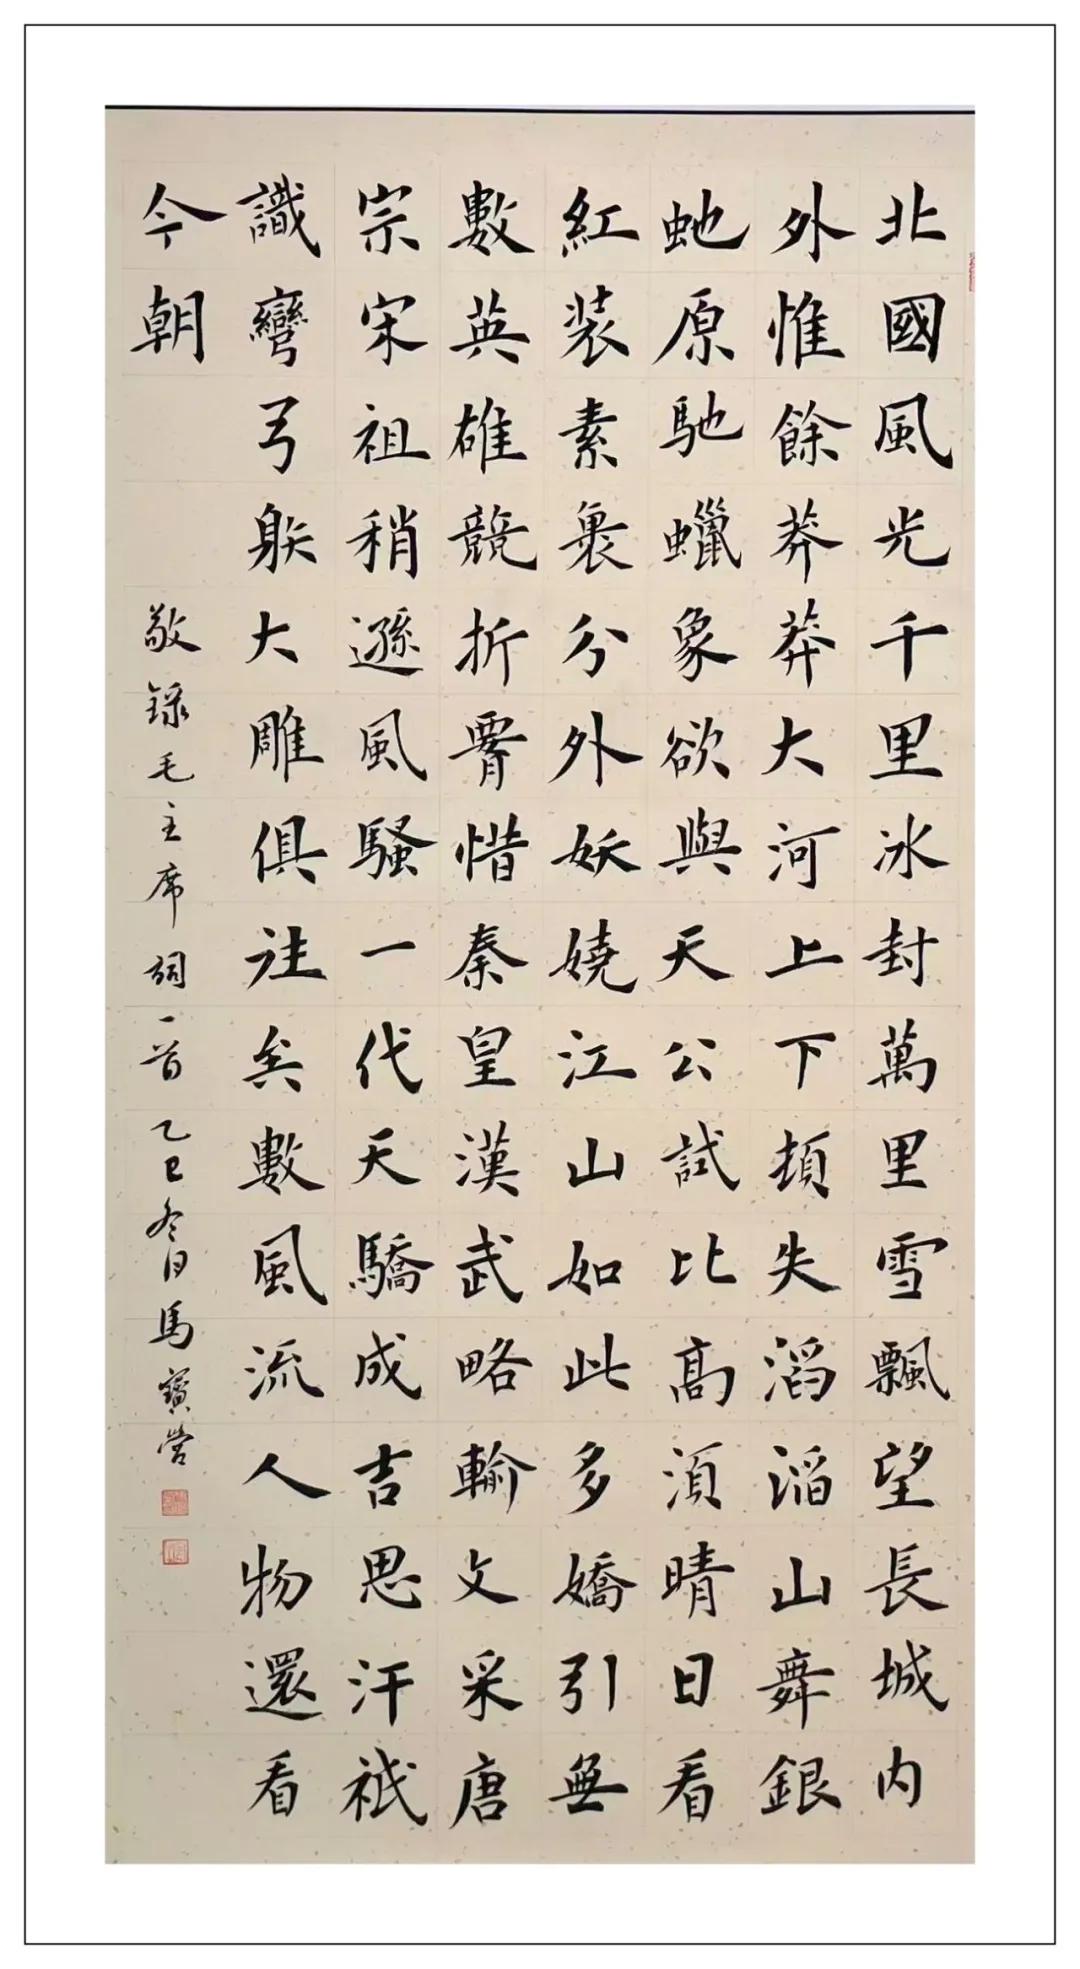 北國風光千里冰封萬里雪飄望長城内
外惟餘莽莽大河上下頓失滔滔山舞銀
虵原馳蠟象欲與天公試比高須晴日看
紅装素裹分外妖嬈江山如此多嬌引無
數英雄競折腰惜秦皇漢武略輸文采唐
宗宋祖稍遜風騷一代天驕成吉思汗祇
識彎弓䠶大雕俱往矣數風流人物還看
今朝
敬録毛主席詞一首乙巳冬日馬寶營